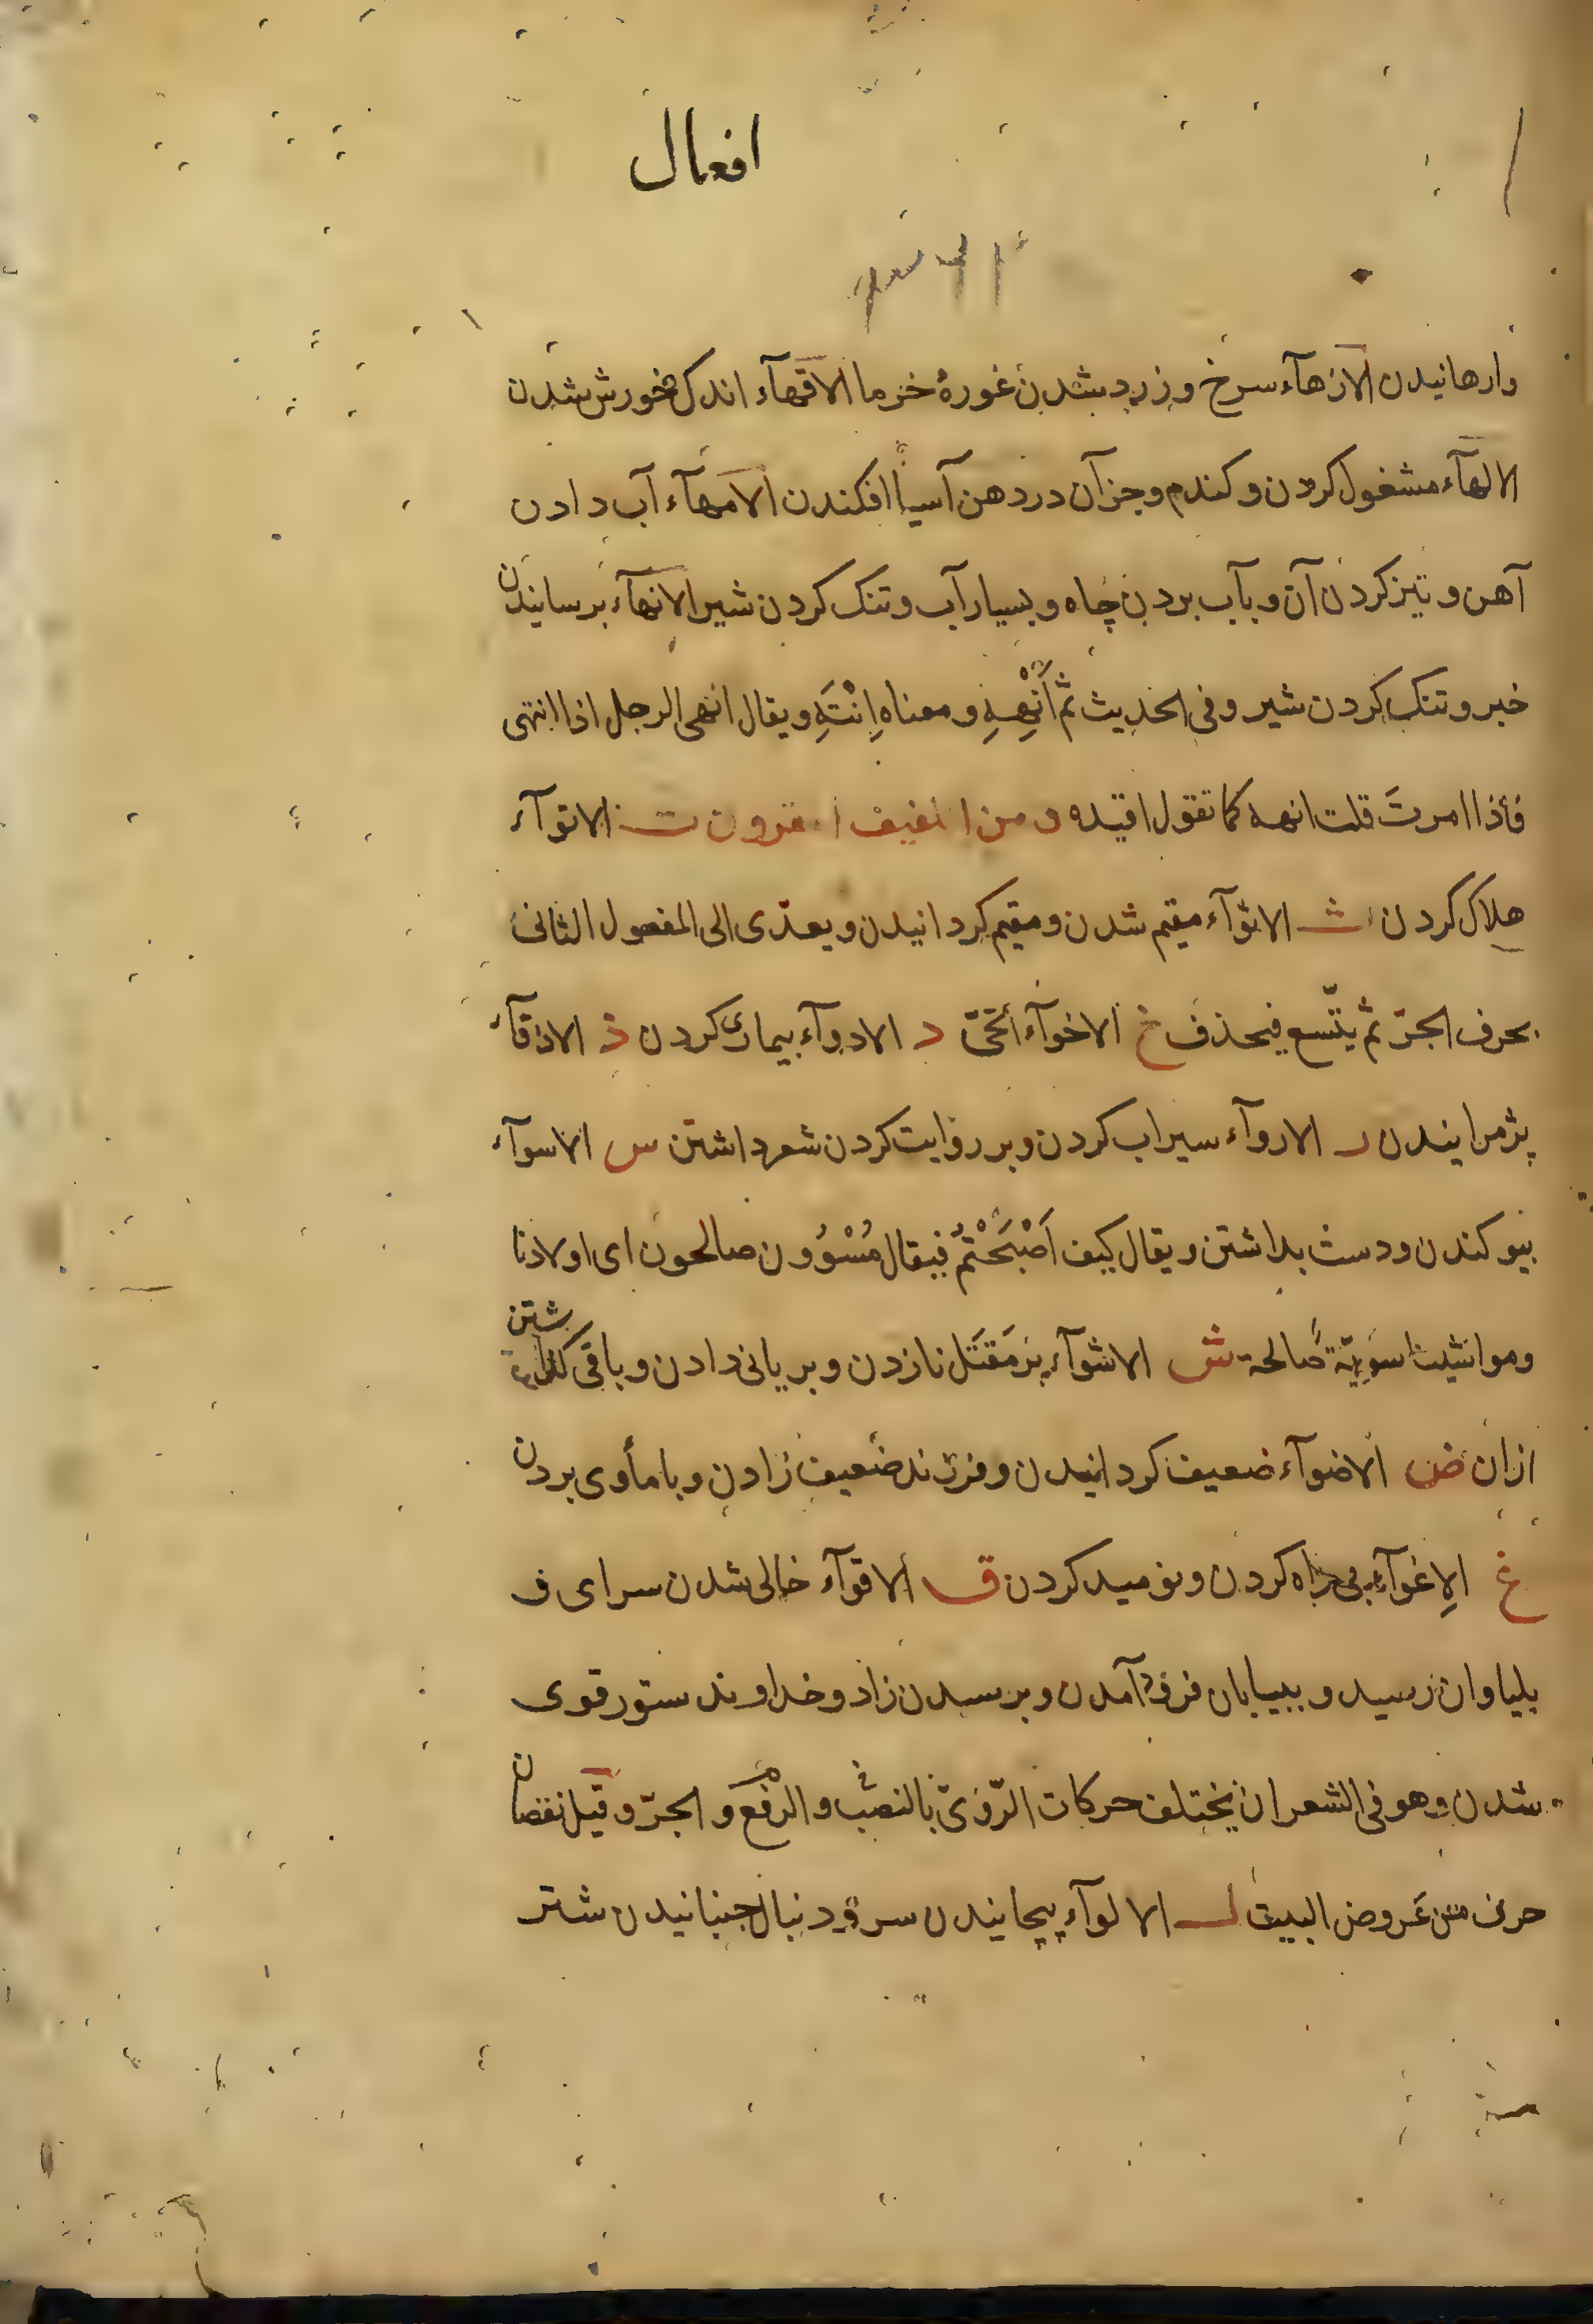 افعال
وارهانیدن الازهآء سرخ و زرد شدن غورهٔ خرما الاقهآء اندک خورش شدن
الالهآء مشغول کردن و کندم و جز آن در دهن آسیا افکندن الامهآء آب دادن
آهن و تیز کردن آن و بآب بردن چاه و بسیار آب و تنک کردن شیر الانهآء برسانیدن
خبر و تنک کردن شیر و فی الحدیث ثم اَنْهِهِ و معناه اِنْتَهِ و یقال انهی الرجل اذا انتهی
فأذا امرتَ قلت انهه کما تقول اقتده و من اللفیف المقرون ت الاتوآء
هلاک کردن ث الاثوآء مقیم شدن و مقیم کردانیدن و یعدّی الی المفعول الثانی
بحرف الجرّ ثم یتّسع فیحذف خ الاخوآء د الادوآء بیمار کردن ذ الاذوآء
پژمرانیدن ر الاروآء سیراب کردن و بر روایت کردن شعر داشتن س الاسوآء
بیوکندن و دست بداشتن و یقال کیف اَصْبَحْتُمْ فیقال مُسْوُونَ صالحون ای اولادنا
و مواشینا سَوِیّةٌ صالحة ش الاشوآء بر مَقتَل نازدن و بریانی دادن و باقی شتن
ازان ض الاضوآء ضعیف کردانیدن و فرزند ضعیف زادن و با مأوی بردن
غ الاِغوآء بی راه کردن و نومید کردن ق الاقوآء خالی شدن سرای و
بلیاوان رسید و ببیابان فرود آمدن و برسیدن زاد و خداوند ستور قوی
شدن و هو فی الشعر ان یختلف حرکات الرّوِیّ بالنصب و الرفع و الجرّ و قیل نقصان
حرف من عَروض البیت ل الالوآء پیچانیدن سر و دنبال جنبانیدن شتر